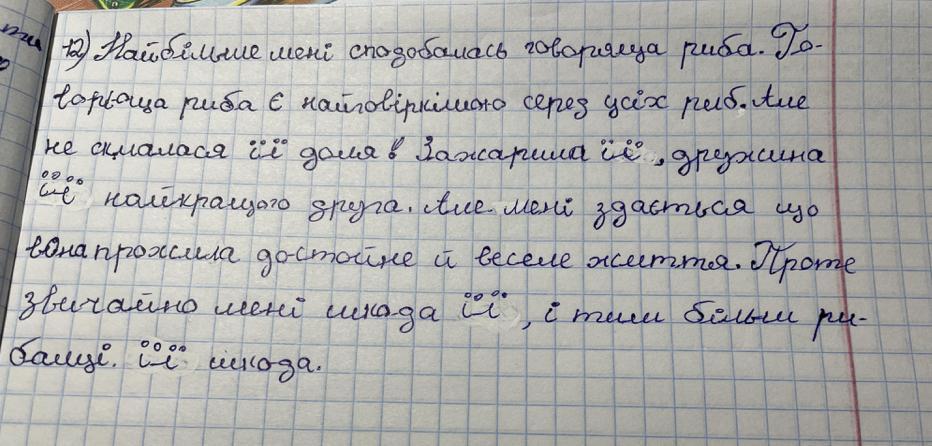 12) Найбільше мені сподобалась говоряща риба. Го-
воряща риба є найговіркішою серед усіх риб. Але
не склалася її доля. Зажарила її, дружина
її найкращого друга. Але мені здається що
вона прожила достойне й веселе життя. Проте
звичайно мені шкода її, і тим більш ри-
балці. її шкода.